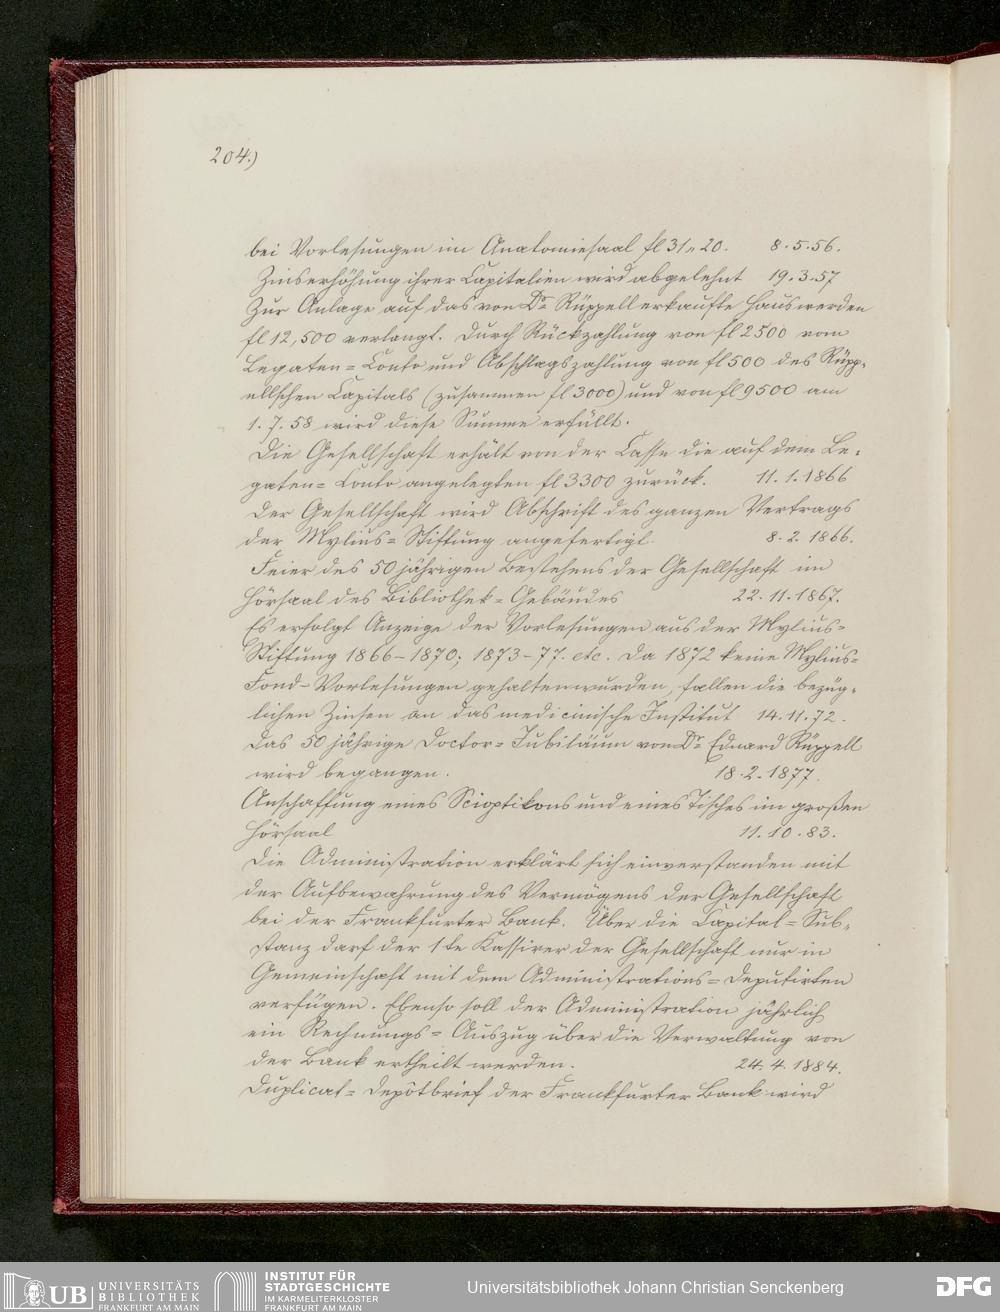 204.)
bei Vorlesungen im Anatomiesaal fl 31 „ 20. 8.5.56.
Zinserhöhung ihrer Capitalien wird abgelehnt 19.3.57
Zur Anlage auf das von Dr Rüppell erkaufte Haus werden
fl 12,500 verlangt. Durch Rückzahlung von fl 2500 vom
Legaten=Conto und Abschlagszahlung von fl 500 des Rüpp-
ellschen Capitals (zusammen fl 3000) und von fl 9500 am
1.7.58 wird diese Summe erfüllt.
Die Gesellschaft erhält von der Casse die auf dem Le-
gaten=Conto angelegten fl 3300 zurück. 11.1.1866
Der Gesellschaft wird Abschrift des ganzen Vertrags
der Mylius=Stiftung angefertigt. 8.2.1866.
Feier des 50 jährigen Bestehens der Gesellschaft im
Hörsaal des Bibliothek=Gebäudes 22.11.1867.
Es erfolgt Anzeige der Vorlesungen aus der Mylius=
Stiftung 1866–1870; 1873–77. etc. Da 1872 keine Mylius=
Fond-Vorlesungen gehalten wurden, fallen die bezüg-
lichen Zinsen an das medicinische Institut 14.11.72.
Das 50 jährige Doctor=Jubiläum von Dr Eduard Rüppell
wird begangen. 18.2.1877.
Anschaffung eines Scioptikons und eines Tisches im großen
Hörsaal 11.10.83.
Die Administration erklärt sich einverstanden mit
der Aufbewahrung des Vermögens der Gesellschaft
bei der Frankfurter Bank. Über die Capital=Sub-
stanz darf der 1te Kassirer der Gesellschaft nur in
Gemeinschaft mit dem Administrations=Deputirten
verfügen. Ebenso soll der Administration jährlich
ein Rechnungs=Auszug über die Verwaltung von
der Bank ertheilt werden. 24.4.1884.
Duplicat=Depôtbrief der Frankfurter Bank wird
UB UNIVERSITÄTS
BIBLIOTHEK
FRANKFURT AM MAIN
INSTITUT FÜR
STADTGESCHICHTE
IM KARMELITERKLOSTER
FRANKFURT AM MAIN
Universitätsbibliothek Johann Christian Senckenberg
DFG